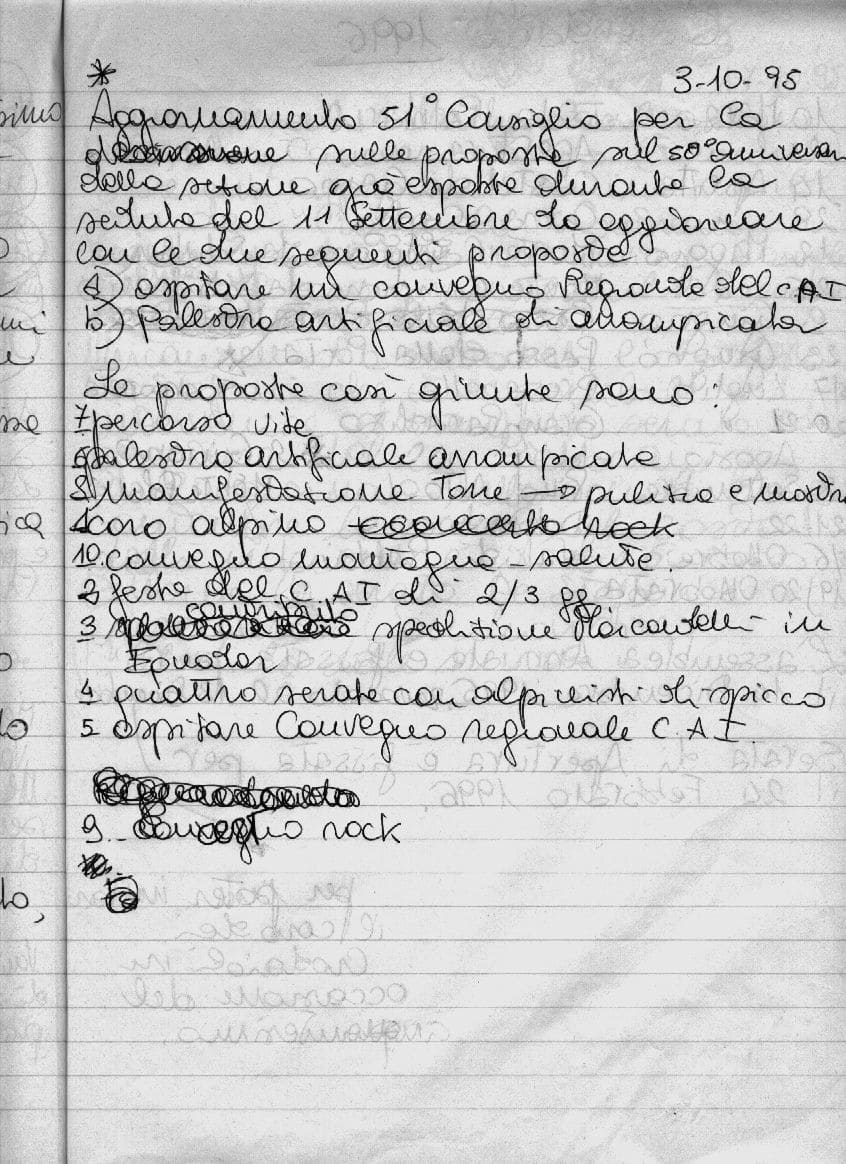 *
3-10-95
Aggiornamento 51° Consiglio per la
sulle proposte sul 50° anniversar
della sezione già esposte durante la
seduta del 11 Settembre da aggiornare
con le due seguenti proposte
a) ospitare un convegno Regionale del CAI
b) Palestra artificiale di arrampicata
Le proposte così giunte sono:
7 percorso vita
6 palestra artificiale arrampicata
8 manifestazione Torre → pulizia e mostra
1 coro alpino concerto rock
10. convegno montagna - salute.
2 festa del C.A.I di 2/3 gg
contributo
3 spedizione in
Equador
4 quattro serate con alpinisti di spicco
5 ospitare Convegno regionale C.A.I.
9. rock